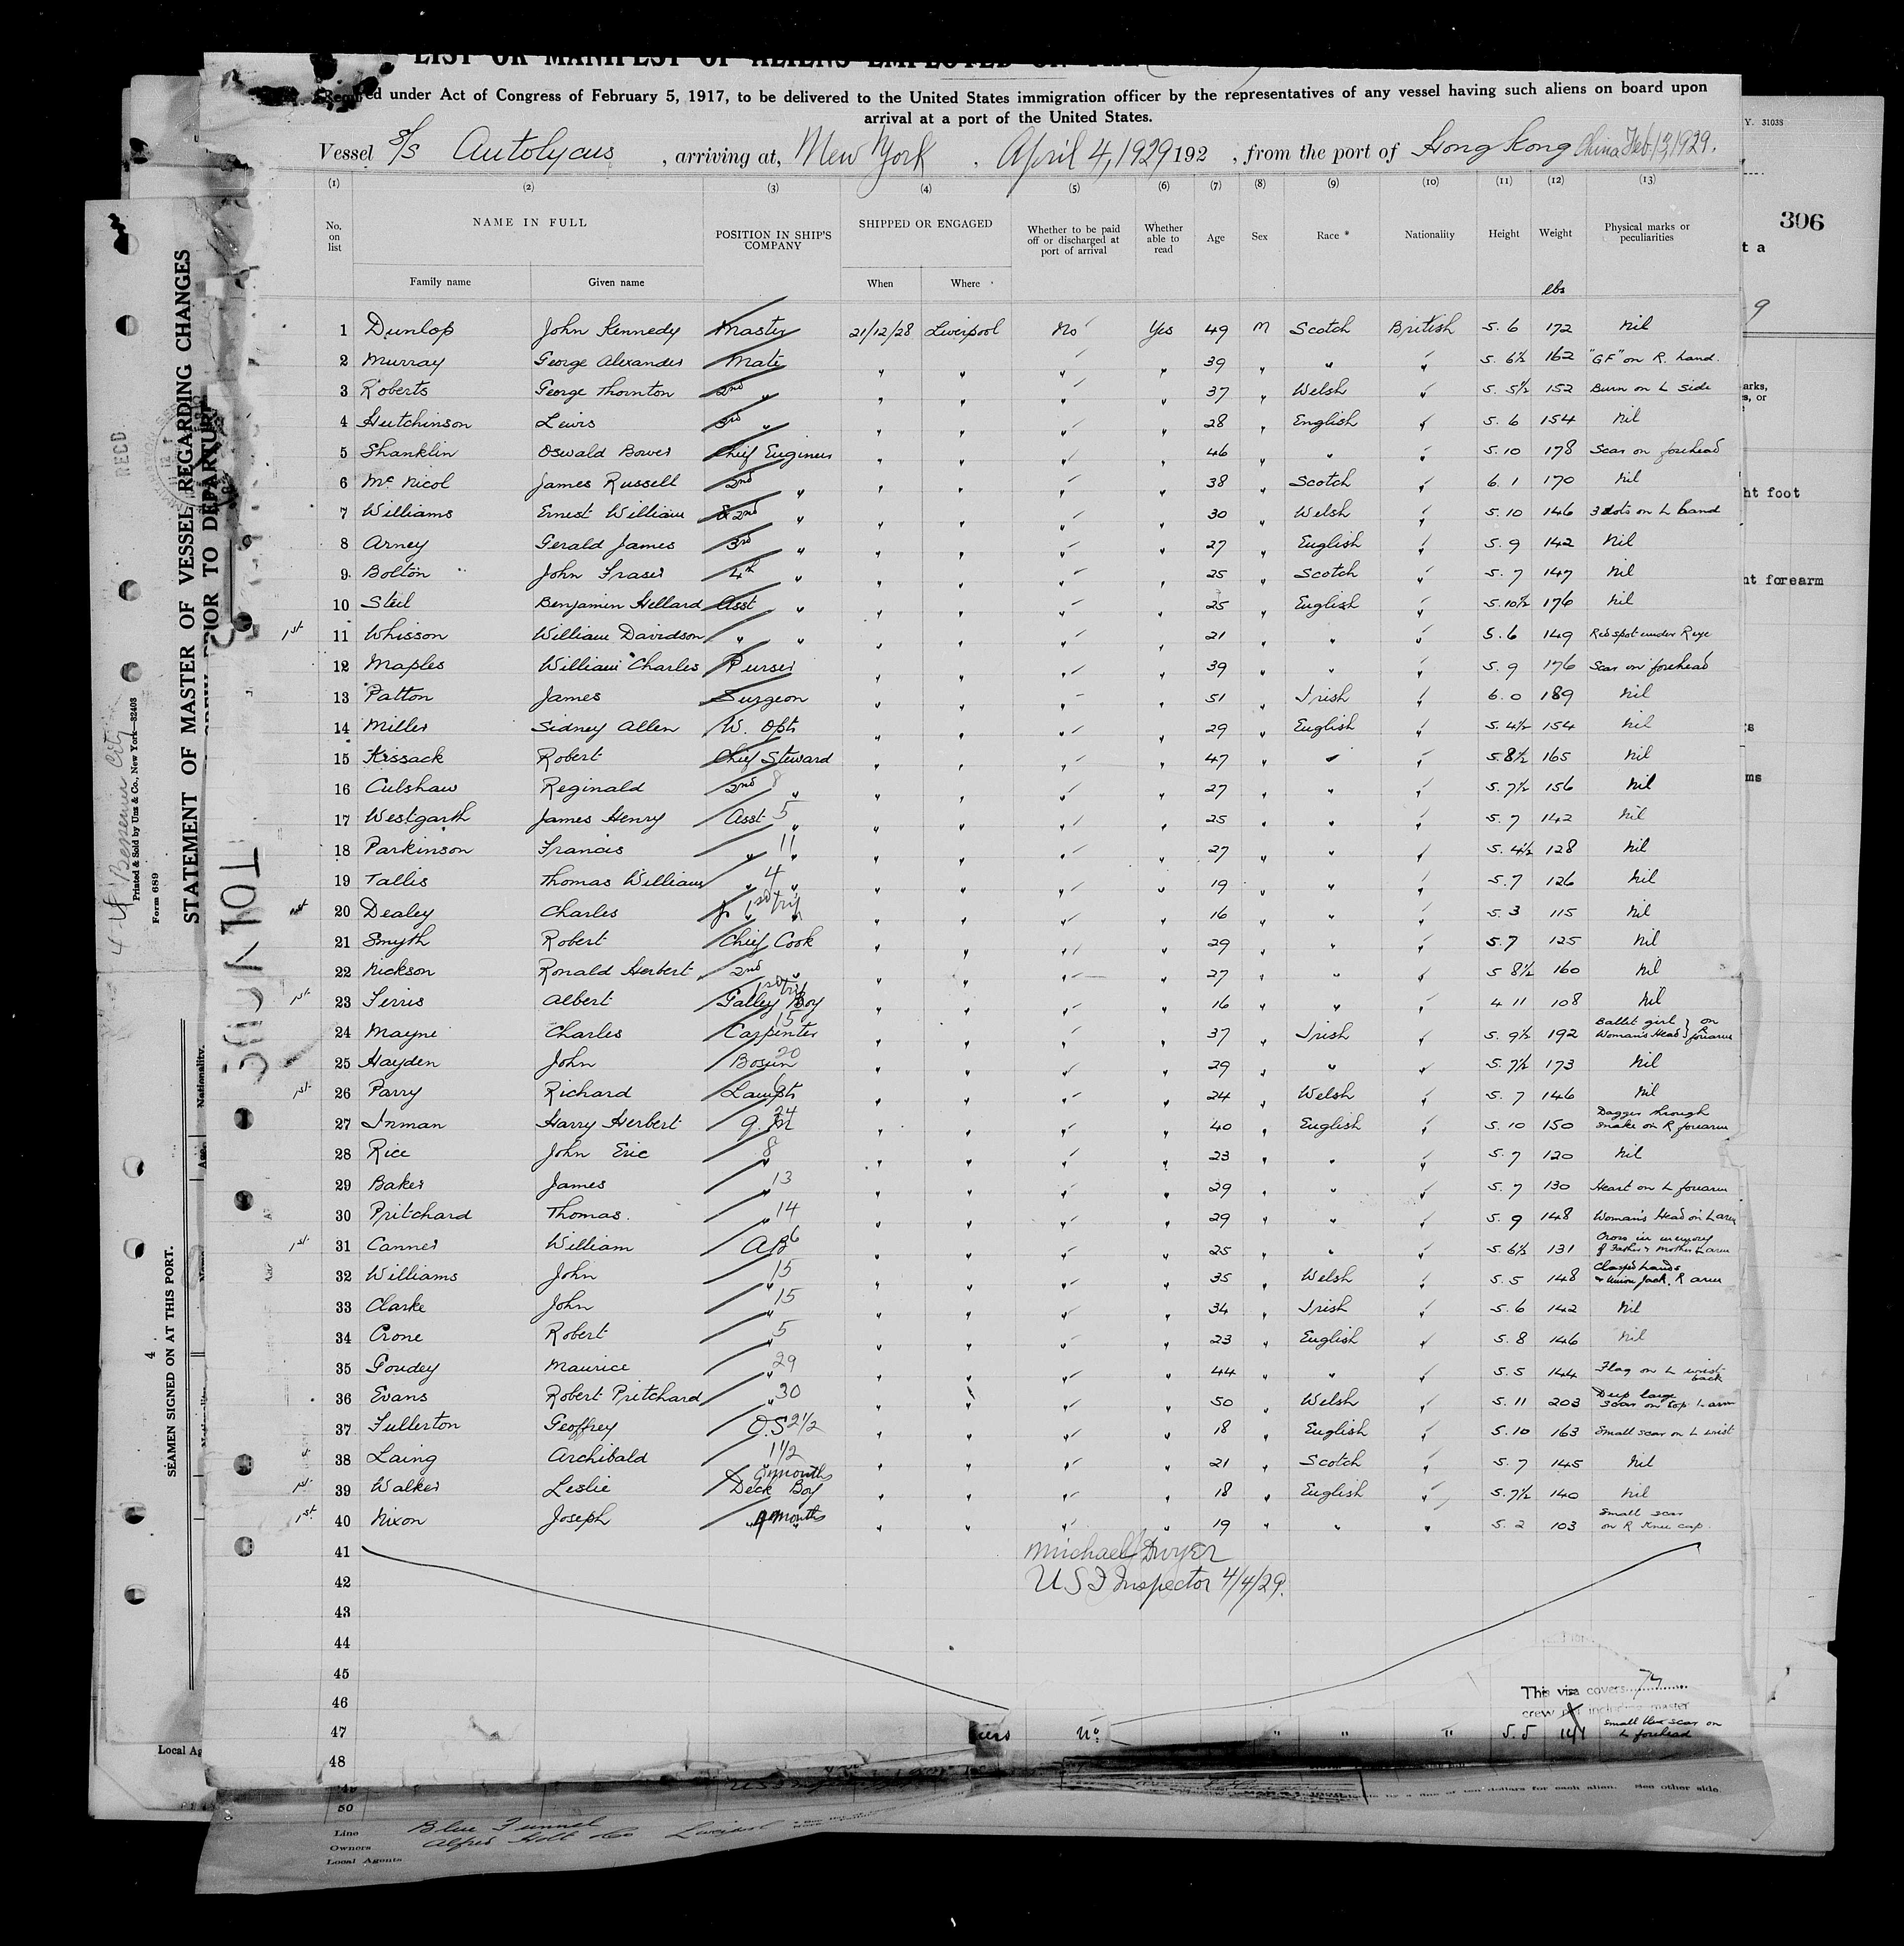 LIST OR MANIFEST OF ALIENS EMPLOYED ON THE
Required under Act of Congress of February 5, 1917, to be delivered to the United States immigration officer by the representatives of any vessel having such aliens on board upon
arrival at a port of the United States.
Vessel S/S Autolycus, arriving at, New York. April 4, 1929 192, from the port of Hong Kong China Feb. 13, 1929.
(1) (2) (3) (4) (5) (6) (7) (8) (9) (10) (11) (12) (13)
No. on list NAME IN FULL POSITION IN SHIP'S COMPANY SHIPPED OR ENGAGED Whether to be paid off or discharged at port of arrival Whether able to read Age Sex Race * Nationality Height Weight Physical marks or peculiarities
Family name Given name When Where lbs
1 Dunlop John Kennedy Master 21/12/28 Liverpool No Yes 49 M Scotch British 5. 6 172 Nil
2 Murray George Alexander Mate " " " " 39 " " " 5. 6½ 162 "GF" on R. hand.
3 Roberts George Thornton 2nd " " " " " 37 " Welsh " 5. 5½ 152 Burn on L side
4 Hutchinson Lewis 3rd " " " " " 28 " English " 5. 6 154 Nil
5 Shanklin Oswald Bower Chief Engineer " " " " 46 " " " 5. 10 178 Scar on forehead
6 Mc Nicol James Russell 2nd " " " " " 38 " Scotch " 6. 1 170 Nil
7 Williams Ernest William 2nd " " " " " 30 " Welsh " 5. 10 146 3 dots on L hand
8 Arney Gerald James 3rd " " " " " 27 " English " 5. 9 142 Nil
9 Bolton John Fraser 4th " " " " " 25 " Scotch " 5. 7 147 Nil
10 Steel Benjamin Hellard Asst " " " " " 25 " English " 5. 10½ 176 Nil
1st 11 Whisson William Davidson " " " " " " 21 " " " 5. 6 149 Red spot under R eye
12 Maples William Charles Purser " " " " 39 " " " 5. 9 176 Scar on forehead
13 Patton James Surgeon " " " " 51 " Irish " 6. 0 189 Nil
14 Miller Sidney Allen W. Optr " " " " 29 " English " 5. 4½ 154 Nil
15 Kissack Robert Chief Steward " " " " 47 " " " 5. 8½ 165 Nil
16 Culshaw Reginald 2nd 8 " " " " " 27 " " " 5. 7½ 156 Nil
17 Westgarth James Henry Asst 5 " " " " " 25 " " " 5. 7 142 Nil
18 Parkinson Francis " 11 " " " " " 27 " " " 5. 4½ 128 Nil
19 Tallis Thomas William " 4 " " " " " 19 " " " 5. 7 126 Nil
1st 20 Dealey Charles Jr 1st trip " " " " " 16 " " " 5. 3 115 Nil
21 Smyth Robert Chief Cook " " " " 29 " " " 5. 7 125 Nil
22 Nickson Ronald Herbert 2nd " " " " " 27 " " " 5 8½ 160 Nil
1st 23 Ferris Albert 1st trip Galley Boy " " " " 16 " " " 4 11 108 Nil
24 Mayne Charles 15 Carpenter " " " " 37 " Irish " 5. 9½ 192 Ballet girl Woman's Head } on R forearm
25 Hayden John Bosun 20 " " " " 29 " " " 5. 7½ 173 Nil
1st 26 Parry Richard Lamptr " " " " 24 " Welsh " 5. 7 146 Nil
27 Inman Harry Herbert 24 Q. M " " " " 40 " English " 5. 10 150 Dagger through Snake on R forearm
28 Rice John Eric " 8 " " " " 23 " " " 5. 7 120 Nil
29 Baker James " 13 " " " " 29 " " " 5. 7 130 Heart on L forearm
30 Pritchard Thomas. " 14 " " " " 29 " " " 5. 9 148 Woman's Head on L arm
1st 31 Canner William AB 6 " " " " 25 " " " 5. 6½ 131 Cross in memory of Father & Mother L arm
32 Williams John " 15 " " " " 35 " Welsh " 5. 5 148 Clasped hands & Union Jack. R arm
33 Clarke John " 15 " " " " 34 " Irish " 5. 6 142 Nil
34 Crone Robert " 5 " " " " 23 " English " 5. 8 146 Nil
35 Goudey Maurice " 29 " " " " 44 " " " 5. 5 144 Flag on L wrist back
36 Evans Robert Pritchard " 30 " " " " 50 " Welsh " 5. 11 203 Deep large scar on top L arm
37 Fullerton Geoffrey O.S 2½ " " " " 18 " English " 5. 10 163 Small scar on L wrist
38 Laing Archibald " 1½ " " " " 21 " Scotch " 5. 7 145 Nil
1st 39 Walker Leslie months Deck Boy " " " " 18 " English " 5. 7½ 140 Nil
1st 40 Nixon Joseph " months " " " " 19 " " " 5. 2 103 Small scar on R Knee cap.
41 Michael J Dwyer
42 U S I Inspector 4/4/29.
43
44
45
46 This visa covers 74
crew not including master
47 No " " " 5. 5 141 Small blue scar on L forehead
48
49
50
of ten dollars for each alien. See other side.
Line Blue Funnel
Owners Alfred Holt & Co Liverpool
Local Agents
STATEMENT OF MASTER OF VESSEL REGARDING CHANGES
PRIOR TO DEPARTURE
AUTOLYCUS
RECD
Form 689
Printed & Sold by Unz & Co., New York—32403
4 Bessemer City
4
SEAMEN SIGNED ON AT THIS PORT.
Nationality.
Local Ag
Y. 31038
306
t a
9
arks,
s, or
ht foot
ht forearm
ms